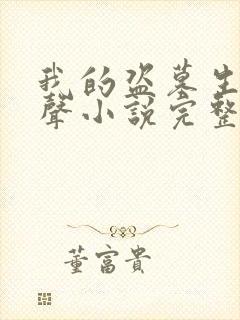 我的盗墓生
聲小説完整
董富貴